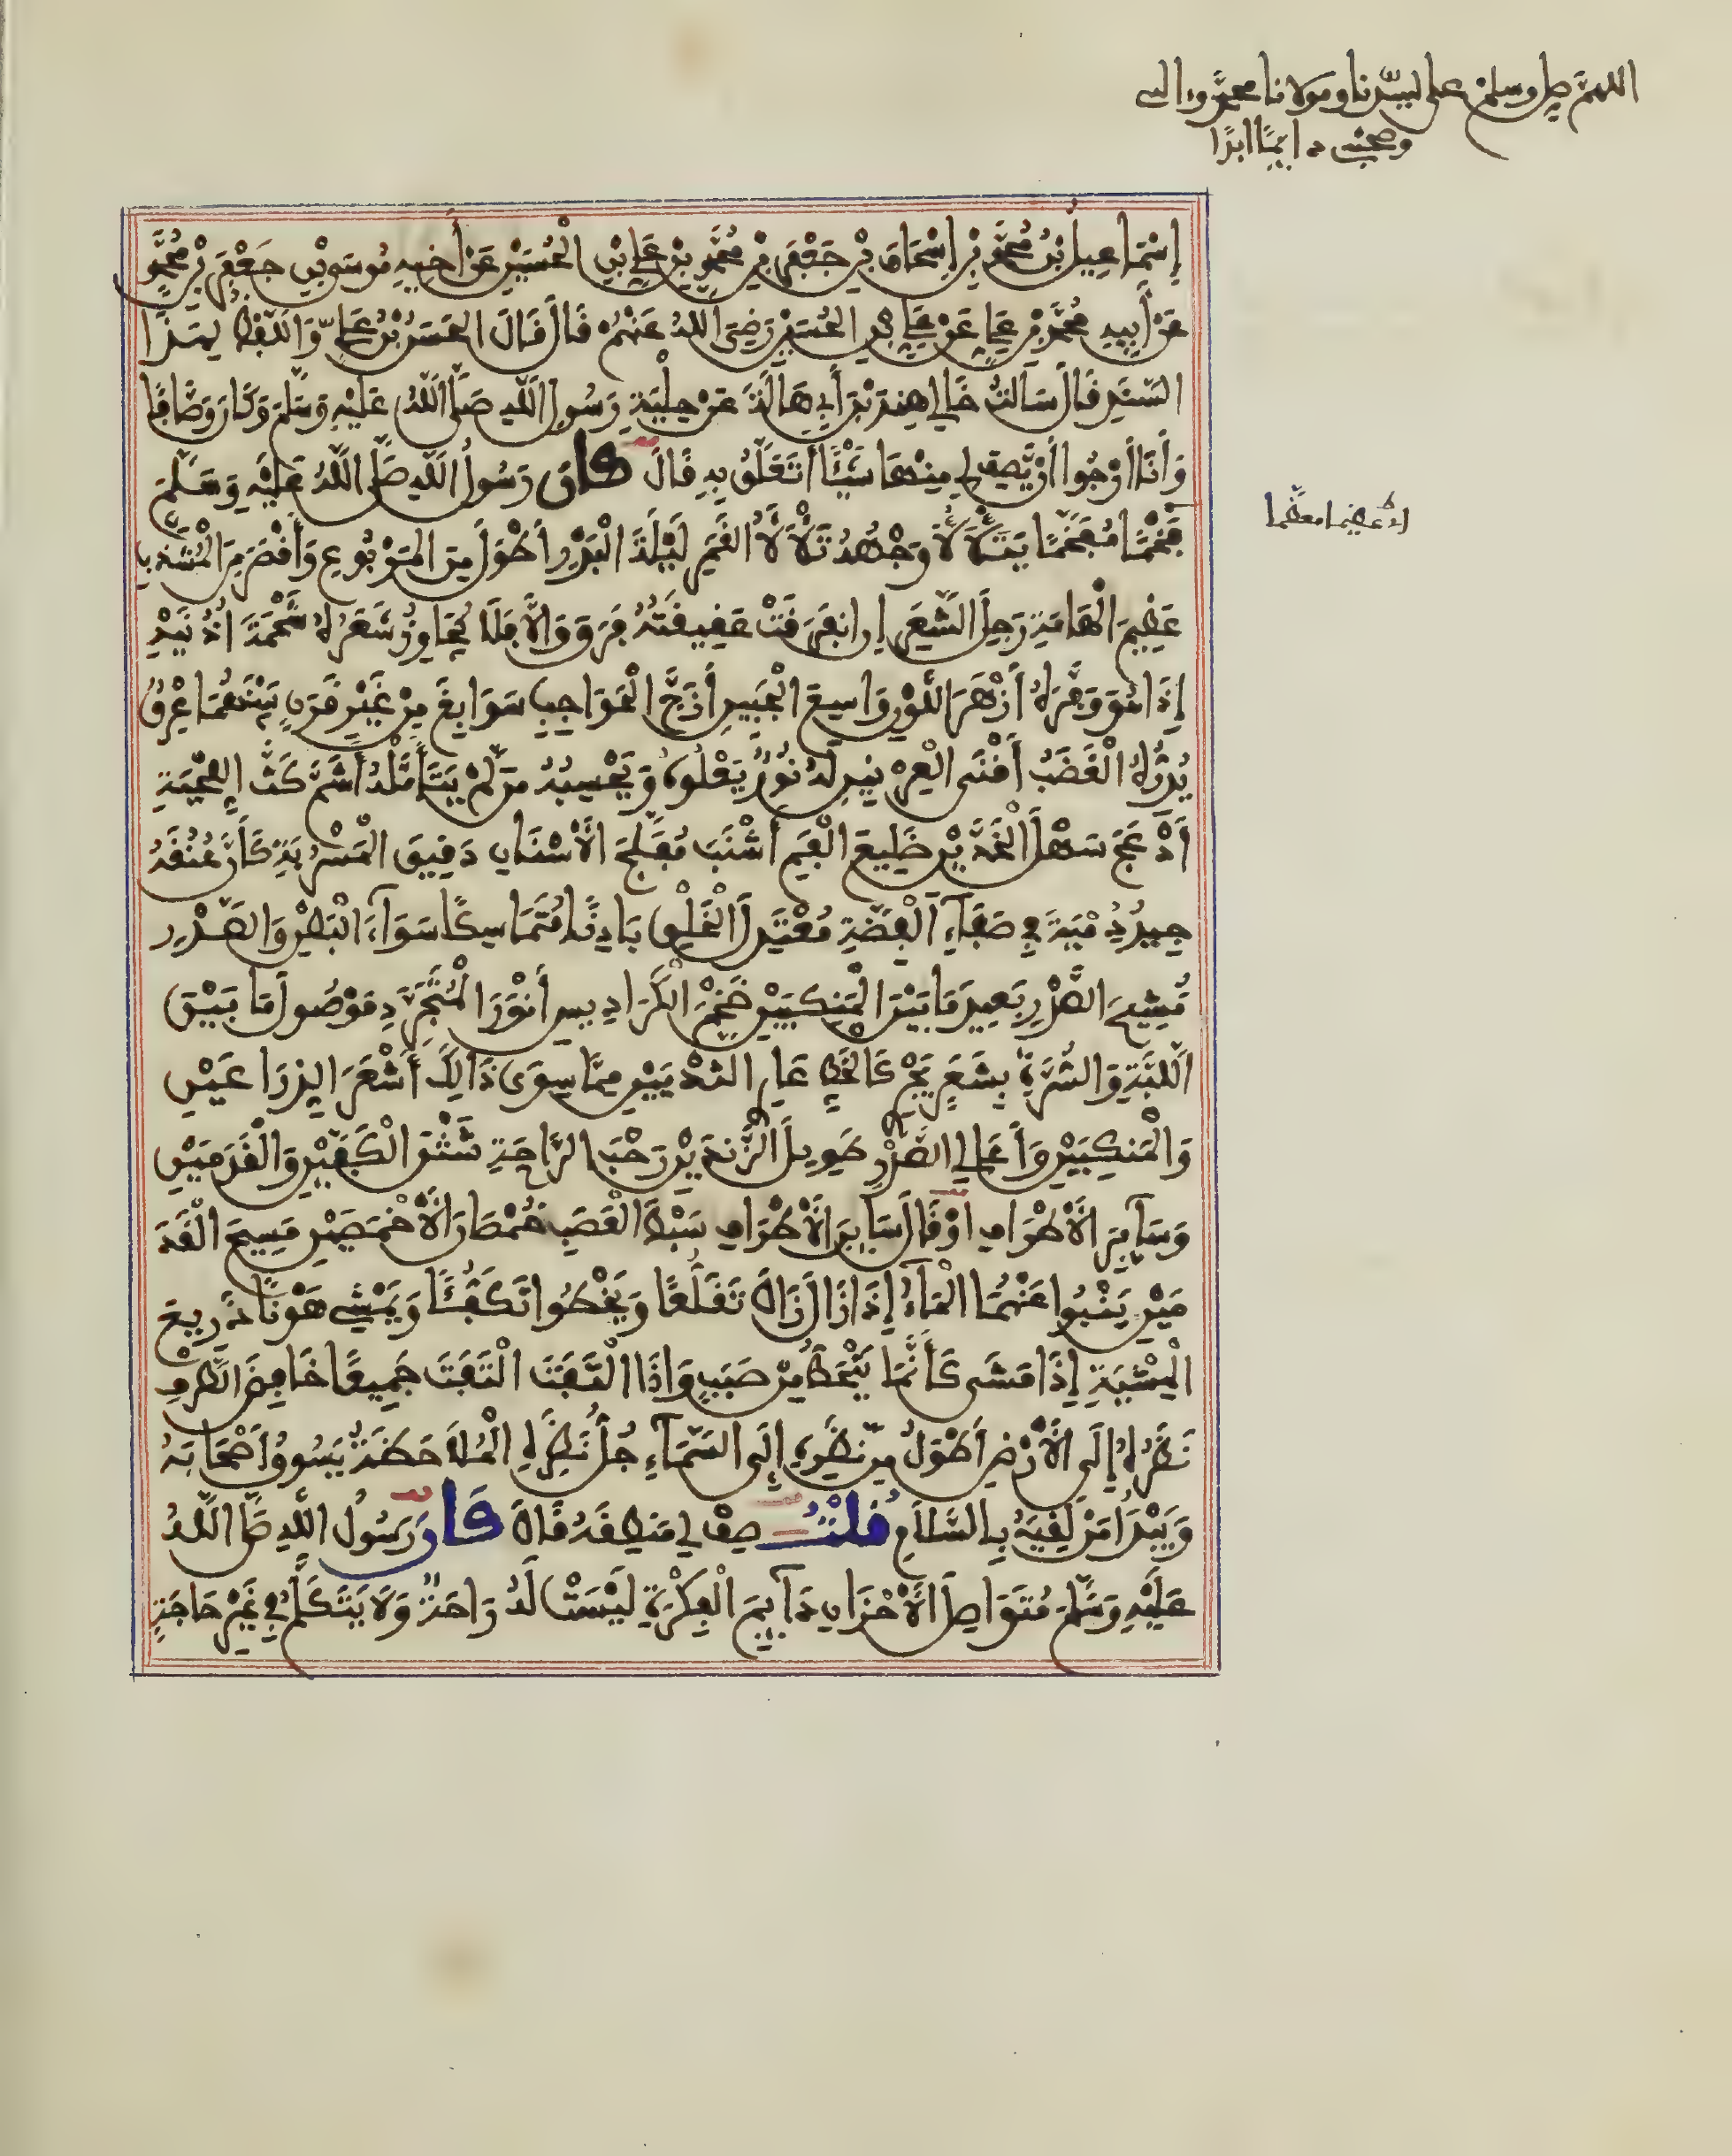 اللهم صل وسلم على سيدنا ومولانا محمد وءاله
وصحبه دايما ابدا
إِسْمَاعِيلُ بْنُ مُحَمَّدِ بْنِ إِسْحَاقَ بْنِ جَعْفَرِ بْنِ مُحَمَّدِ بْنِ عَلِيِّ بْنِ الْحُسَيْنِ عَنْ أَخِيهِ مُوسَى بْنِ جَعْفَرِ بْنِ مُحَمَّدٍ
عَنْ أَبِيهِ مُحَمَّدِ بْنِ عَلِيٍّ عَنْ عَلِيِّ بْنِ الْحُسَيْنِ رَضِيَ اللهُ عَنْهُمْ قَالَ قَالَ الْحَسَنُ بْنُ عَلِيٍّ وَاللَّفْظُ لِهَذَا
السَّنَدِ قَالَ سَأَلْتُ خَالِي هِنْدَ بْنَ أَبِي هَالَةَ عَنْ حِلْيَةِ رَسُولِ اللَّهِ صَلَّى اللَّهُ عَلَيْهِ وَسَلَّمَ وَكَانَ وَصَّافًا
وَأَنَا أَرْجُوا أَنْ يَّصِفَ لِي مِنْهَا شَيْئًا أَتَعَلَّقُ بِهِ قَالَ كَانَ رَسُولُ اللَّهِ صَلَّى اللَّهُ عَلَيْهِ وَسَلَّمَ
فَخْمًا مُفَخَّمًا يَتَلَأْلَأُ وَجْهُهُ تَلَأْلُأَ الْقَمَرِ لَيْلَةَ الْبَدْرِ أَطْوَلَ مِنَ الْمَرْبُوعِ وَأَقْصَرَ مِنَ الْمُشَذَّبِ
اي عظيما معظما
عَظِيمَ الْهَامَةِ رَجِلَ الشَّعَرِ إِنِ انْفَرَقَتْ عَقِيقَتُهُ فَرَقَ وَإِلَّا فَلَا يُجَاوِزُ شَعَرُهُ شَحْمَةَ أُذُنَيْهِ
إِذَا هُوَ وَفَّرَهُ أَزْهَرَ اللَّوْنِ وَاسِعَ الْجَبِينِ أَزَجَّ الْحَوَاجِبِ سَوَابِغَ مِنْ غَيْرِ قَرَنٍ بَيْنَهُمَا عِرْقٌ
يُدِرُّهُ الْغَضَبُ أَقْنَى الْعِرْنِينِ لَهُ نُورٌ يَعْلُوهُ وَيَحْسِبُهُ مَن لَّمْ يَتَأَمَّلْهُ أَشَمَّ كَثَّ اللِّحْيَةِ
أَدْعَجَ سَهْلَ الْخَدَّيْنِ ضَلِيعَ الْفَمِ أَشْنَبَ مُفَلَّجَ الْأَسْنَانِ دَقِيقَ الْمَسْرُبَةِ كَأَنَّ عُنُقَهُ
جِيدُ دُمْيَةٍ فِي صَفَاءِ الْفِضَّةِ مُعْتَدِلَ الْخَلْقِ بَادِنًا مُتَمَاسِكًا سَوَاءَ الْبَطْنِ وَالصَّدْرِ
مُشِيحَ الصَّدْرِ بَعِيدَ مَا بَيْنَ الْمَنكِبَيْنِ ضَخْمَ الْكَرَادِيسِ أَنْوَرَ الْمُتَجَرَّدِ مَوْصُولَ مَا بَيْنَ
اللَّبَّةِ وَالسُّرَّةِ بِشَعَرٍ يَجْرِي كَالْخَطِّ عَارِيَ الثَّدْيَيْنِ مِمَّا سِوَى ذَالِكَ أَشْعَرَ الذِّرَاعَيْنِ
وَالْمَنكِبَيْنِ وَأَعَالِي الصَّدْرِ طَوِيلَ الزَّنْدَيْنِ رَحْبَ الرَّاحَةِ شَثْنَ الْكَفَّيْنِ وَالْقَدَمَيْنِ
وَسَآئِرِ الْأَطْرَافِ أَوْ قَالَ سَآئِنَ الْأَطْرَافِ سَبْطَ الْقَصَبِ خُمْصَانَ الْأَخْمَصَيْنِ مَسِيحَ الْقَدَ
مَيْنِ يَنْبُوا عَنْهُمَا الْمَاءُ إِذَا زَالَ زَالَ تَقَلُّعًا وَيَخْطُوا تَكَفُّئًا وَيَمْشِي هَوْنًا ذَرِيعَ
الْمِشْيَةِ إِذَا مَشَى كَأَنَّمَا يَنْحَطُّ مِنْ صَبَبٍ وَإِذَا الْتَفَتَ الْتَفَتَ جَمِيعًا خَافِضَ الطَّرْفِ
نَظَرُهُ إِلَى الْأَرْضِ أَطْوَلُ مِن نَّظَرِهِ إِلَى السَّمَاءِ جُلُّ نَظَرِهِ الْمُلَاحَظَةُ يَسُوقُ أَصْحَابَهُ
وَيَبْدَأُ مَن لَّقِيَهُ بِالسَّلَامِ قُلْتُ صِفْ لِي مَنْطِقَهُ قَالَ كَانَ رَسُولُ اللَّهِ صَلَّى اللَّهُ
عَلَيْهِ وَسَلَّمَ مُتَوَاصِلَ الْأَحْزَانِ دَآئِمَ الْفِكْرَةِ لَيْسَتْ لَهُ رَاحَةٌ وَلَا يَتَكَلَّمُ فِي غَيْرِ حَاجَةٍ